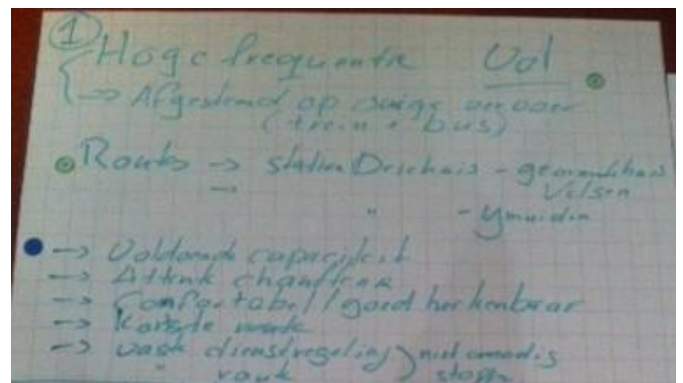 ① Hoge frequentie Vol
-> Afgestemd op overig vervoer
(trein + bus)
Route -> station Driehuis - gemeentehuis
Velsen
-> " - Ymuiden
-> Voldoende capaciteit
-> Attente chauffeur
-> Comfortabel / goed herkenbaar
-> Kortste route
-> vaste dienstregeling ) niet onnodig
" route stoppen